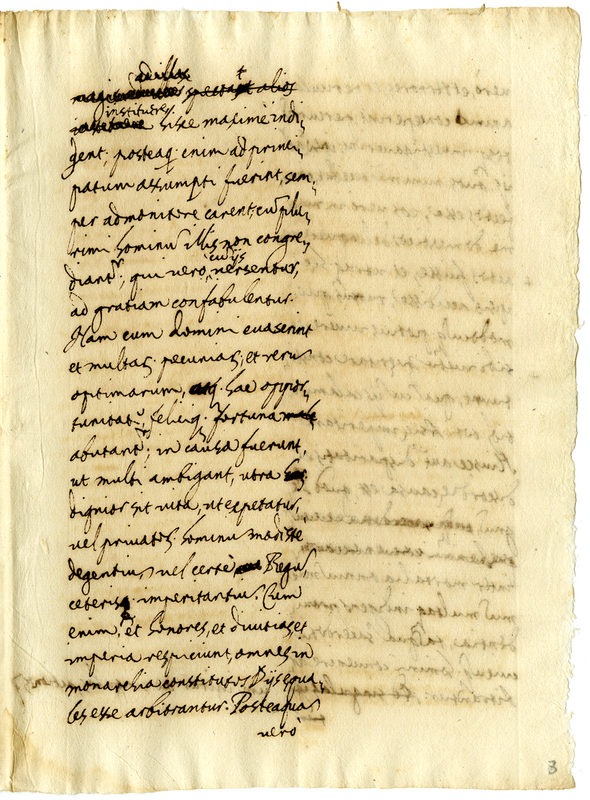 ad illos
spectant alios
instituere
esse maximè indi=
gent; posteaq; enim ad princi=
patum assumpti fuerint, sem=
per admonitore carent; cū plu=
rimi hominū illis non congre=
diantr; qui verò, cū ijs versentur,
ad gratiam confabulentur.
Nam cum domini evaserint
et multas pecunias, et rerū
optimarum, atq; hac oppor=
tunitate, feliciq; fortuna male
abutantr; in causa fuerunt,
ut multi ambigant, utra
dignior sit vita, ut expetatur,
vel privatos hominū modeste
degentiū, vel certè Regū
ceteris imperitantiū. Cum
enim et honores, et divitias, et
imperia respiciunt, omnes in
monarchia constitutos Dijs equa=
les esse arbitrantur. Posteaquā
verò
8